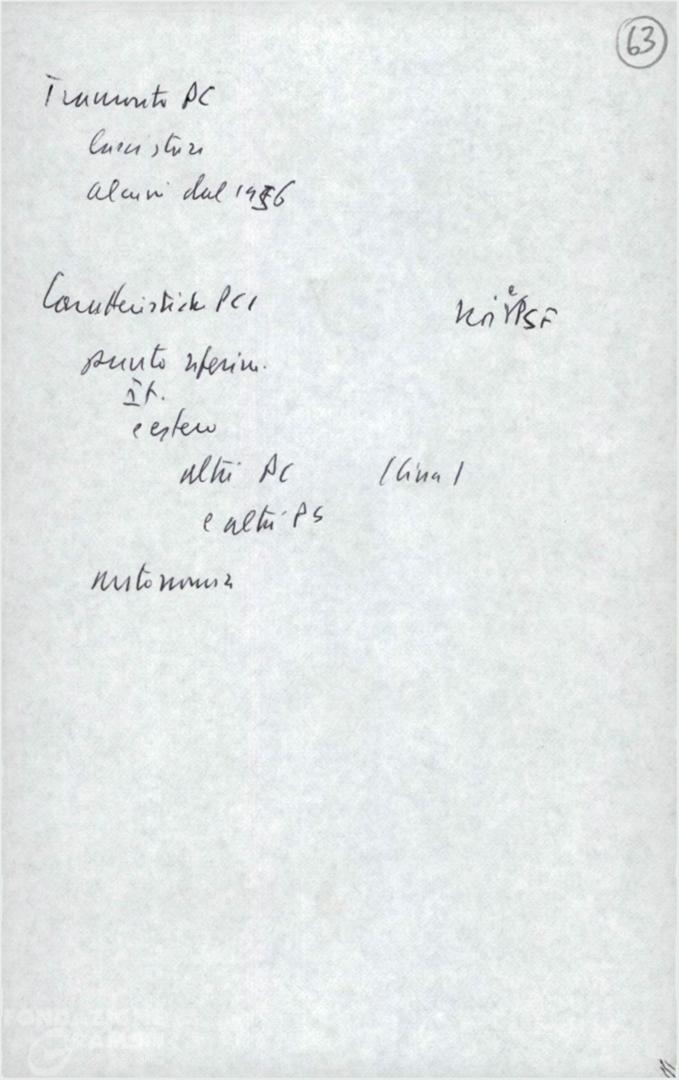 63
Tramonto PC
alcuni dal 1956
Caratteristiche PCI
punto riferim.
It.
e estero
altri PC (Cina)
e altri PS
autonomia
FONDAZIONE
GRAMSCI